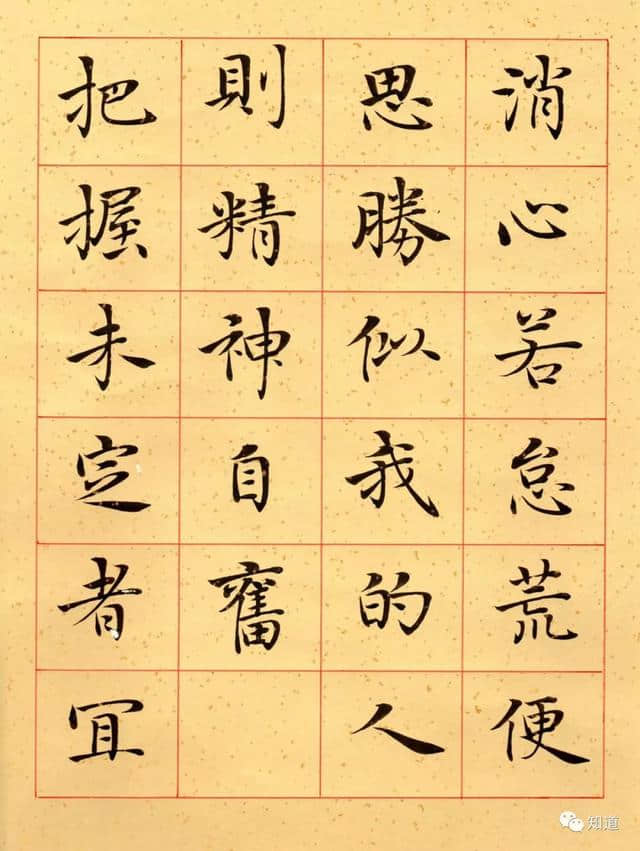 消心若怠荒便
思勝似我的人
則精神自奮
把握未定者冝
知道